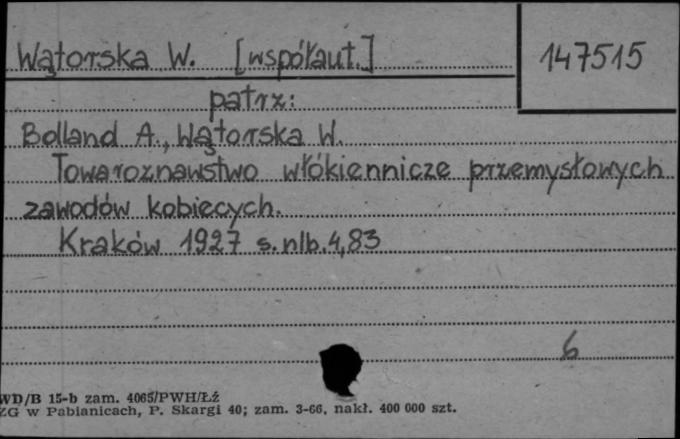 Wątorska W. [współaut.] 147515
patrz:
Bolland A., Wątorska W.
Towaroznawstwo włókiennicze przemysłowych
zawodów kobiecych.
Kraków 1927 s.nlb.4,83
6
WD/B 15-b zam. 4065/PWH/Łź
ZG w Pabianicach, P. Skargi 40; zam. 3-66, nakł. 400 000 szt.